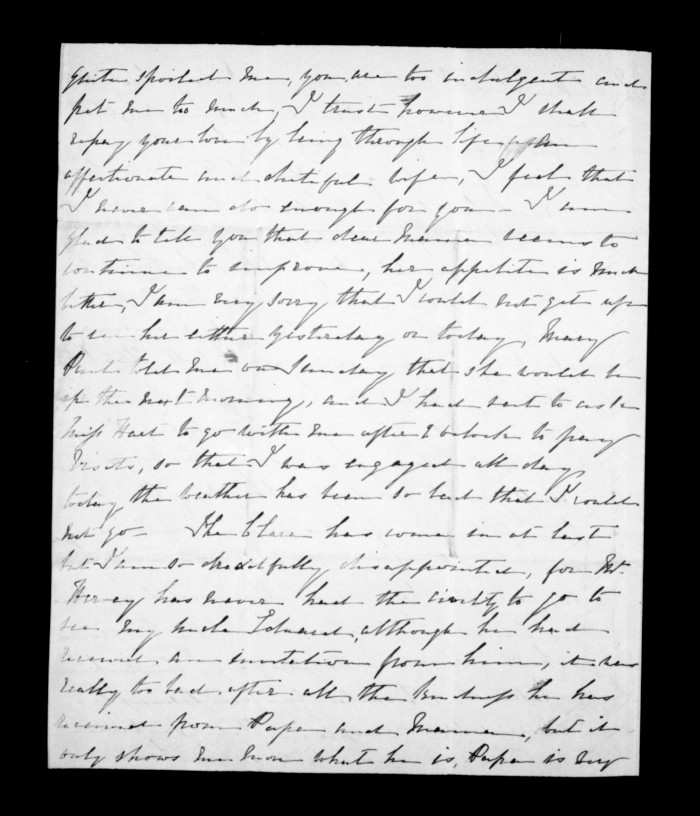 quite spoiled me, you are too indulgent and
pet me too much, I trust however I shall
repay your love by being through life an
affectionate and dutiful wife, I feel that
I never can do enough for you - I am
glad to tell you that dear Mama seems to
continue to improve, her appetite is much
better, I am very sorry that I could not get up
to see her either yesterday or today, Mary
told me on Sunday that she would be
up the next morning, and I had sent to ask
Miss Hart to go with me after 2 o'clock to pay
visits, so that I was engaged all day,
today the weather has been so bad that I could
not go - The Clara has come in at last
but I am so dreadfully disappointed, for Mr.
Hervey has never had the civility to go to
see my uncle Edward, although he had
received an invitation from him, it was
really too bad after all the kindness he has
received from Papa and Mama, but it
only shows me more what he is, Papa is very